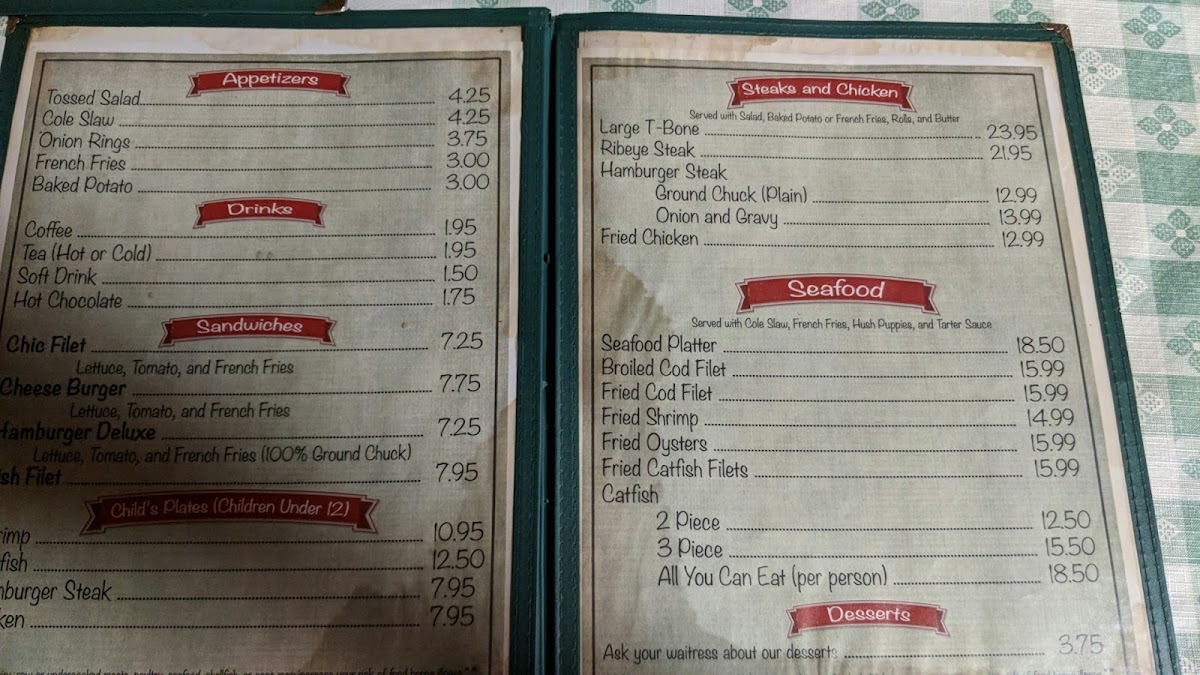 Appetizers
Tossed Salad 4.25
Cole Slaw 4.25
Onion Rings 3.75
French Fries 3.00
Baked Potato 3.00
Drinks
Coffee 1.95
Tea (Hot or Cold) 1.95
Soft Drink 1.50
Hot Chocolate 1.75
Sandwiches
Chic Filet 7.25
Lettuce, Tomato, and French Fries
Cheese Burger 7.75
Lettuce, Tomato, and French Fries
Hamburger Deluxe 7.25
Lettuce, Tomato, and French Fries (100% Ground Chuck)
sh Filet 7.95
Child's Plates (Children Under 12)
rimp 10.95
fish 12.50
nburger Steak 7.95
ken 7.95
Steaks and Chicken
Served with Salad, Baked Potato or French Fries, Rolls, and Butter
Large T-Bone 23.95
Ribeye Steak 21.95
Hamburger Steak
Ground Chuck (Plain) 12.99
Onion and Gravy 13.99
Fried Chicken 12.99
Seafood
Served with Cole Slaw, French Fries, Hush Puppies, and Tarter Sauce
Seafood Platter 18.50
Broiled Cod Filet 15.99
Fried Cod Filet 15.99
Fried Shrimp 14.99
Fried Oysters 15.99
Fried Catfish Filets 15.99
Catfish
2 Piece 12.50
3 Piece 15.50
All You Can Eat (per person) 18.50
Desserts
Ask your waitress about our desserts 3.75